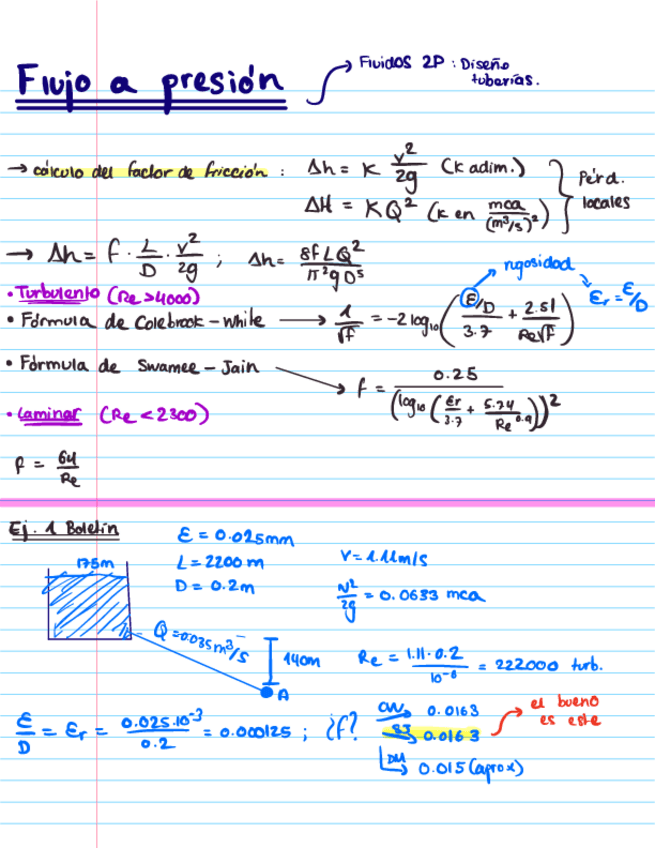 Flujo a presión → Fluidos 2P : Diseño tuberías.
→ cálculo del factor de fricción : Δh = K v²/2g (K adim.)
ΔH = KQ² (K en mca/(m³/s)²) } Pérd. locales
→ Δh = f · L/D · v²/2g ; Δh = 8fLQ²/π²gD⁵
rugosidad → Ɛr = Ɛ/D
• Turbulento (Re>4000)
• Fórmula de Colebrook-White → 1/√f = -2 log₁₀ ( (Ɛ/D)/3.7 + 2.51/Re√f )
• Fórmula de Swamee-Jain → f = 0.25/(log₁₀ ( Ɛr/3.7 + 5.74/Re^0.9 ))²
• Laminar (Re < 2300)
f = 64/Re
Ej. 1 Boletín
Ɛ = 0.025mm
L = 2200 m
D = 0.2m
V = 1.11m/s
v²/2g = 0.0633 mca
175m
Q = 0.035 m³/s
140m
A
Re = 1.11 · 0.2 / 10⁻⁶ = 222000 turb.
Ɛ/D = Ɛr = 0.025·10⁻³/0.2 = 0.000125 ; ¿f?
CW → 0.0163
SJ → 0.0163 → el bueno es este
DM → 0.015 (aprox)